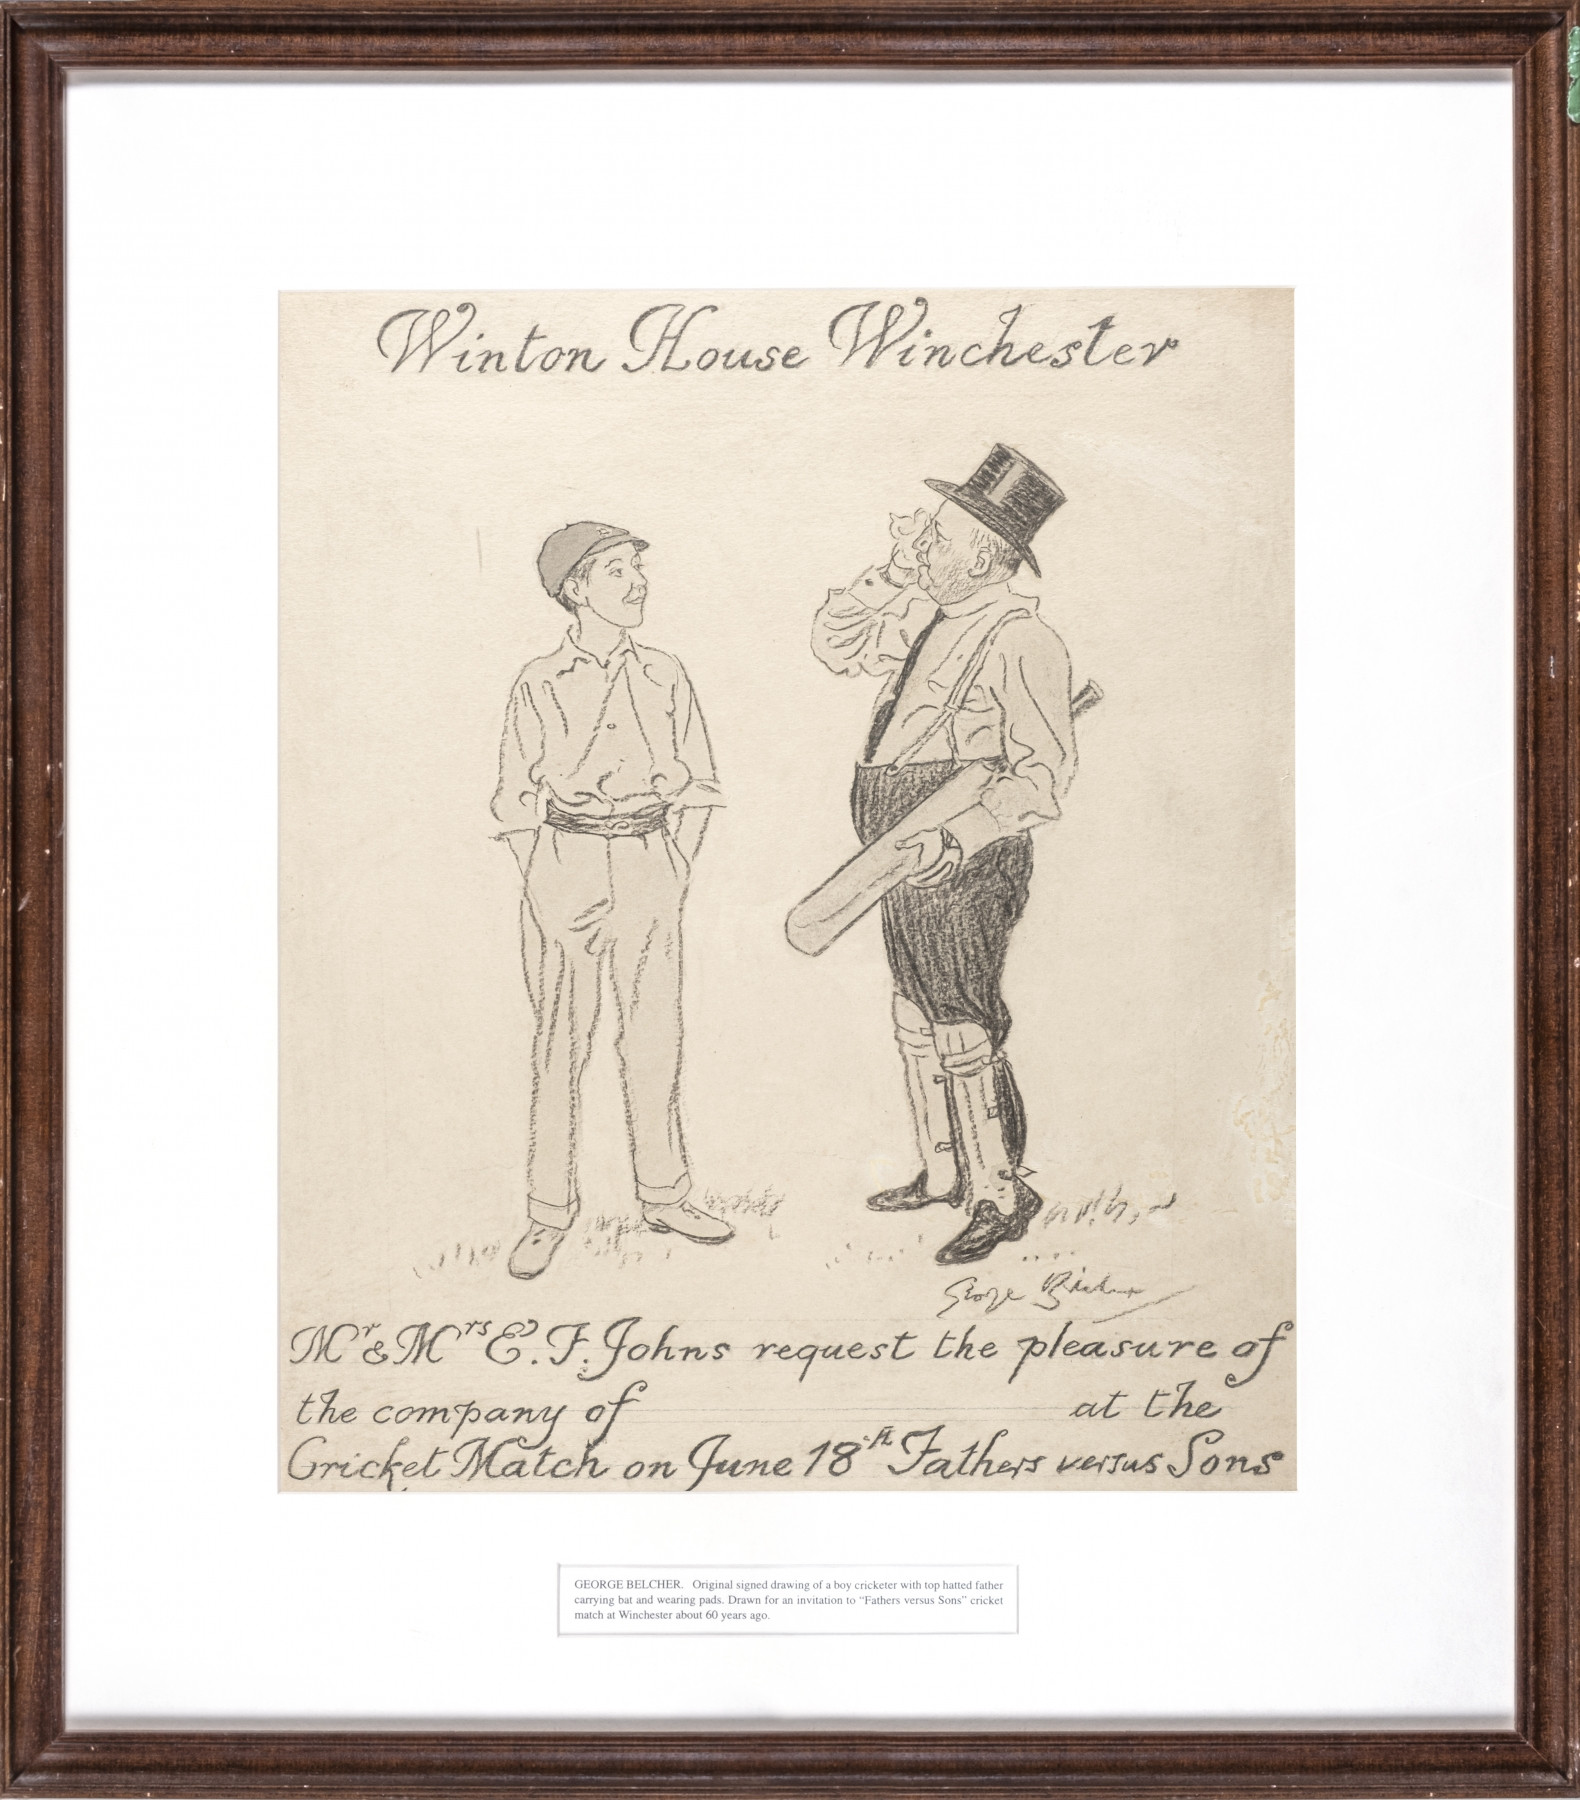 Winton House Winchester
George Belcher
Mr & Mrs E. F. Johns request the pleasure of
the company of at the
Cricket Match on June 18th Fathers versus Sons
GEORGE BELCHER. Original signed drawing of a boy cricketer with top hatted father
carrying bat and wearing pads. Drawn for an invitation to “Fathers versus Sons” cricket
match at Winchester about 60 years ago.